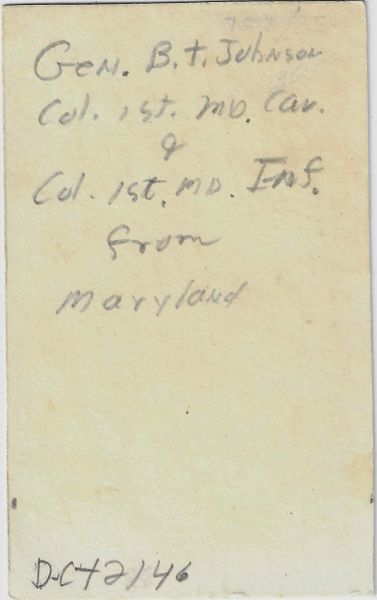 Gen. B.t. Johnson
Col. 1st. MD. Cav.
&
Col. 1st. MD. Inf.
from
Maryland
D-Ct2146